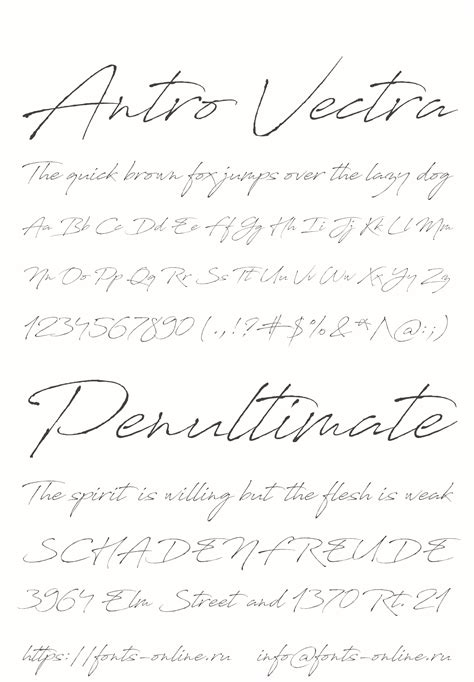 Antro Vectra
The quick brown fox jumps over the lazy dog
Aa Bb Cc Dd Ee Ff Gg Hh Ii Jj Kk Ll Mm
Nn Oo Pp Qq Rr Ss Tt Uu Vv Ww Xx Yy Zz
1234567890 (.,!?#$%&*^@:;)
Penultimate
The spirit is willing but the flesh is weak
SCHADENFREUDE
3964 Elm Street and 1370 Rt. 21
https://fonts-online.ru info@fonts-online.ru